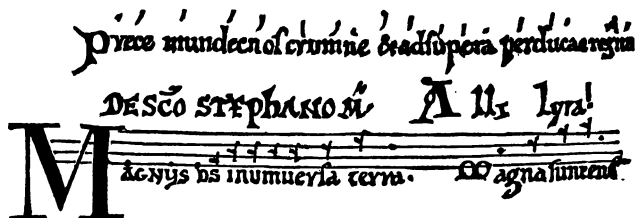 Prece mundet nos crimine & ad supera perducat regna
DE SCO STEPHANO M All lyra
MAGNUS DS IN UNIUERSA TERRA. Magna sunt ens